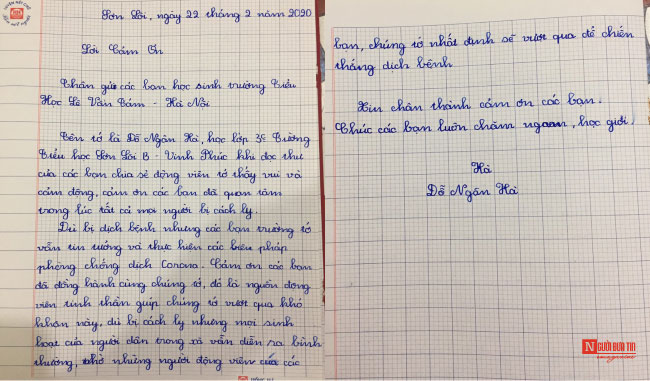 Sơn Lôi, ngày 22 tháng 2 năm 2020
Lời Cám Ơn
Thân gửi các bạn học sinh trường Tiểu
Học Lê Văn Tám - Hà Nội
Tên tớ là Đỗ Ngân Hà, học lớp 3C Trường
Tiểu học Sơn Lôi B - Vĩnh Phúc khi đọc thư
của các bạn chia sẻ động viên tớ thấy vui và
cảm động, cảm ơn các bạn đã quan tâm
trong lúc tất cả mọi người bị cách ly.
Dù bị dịch bệnh nhưng các bạn trường tớ
vẫn tin tưởng và thực hiện các biêu pháp
phòng chống dịch Corona. Cám ơn các bạn
đã đồng hành cùng chúng tớ, đó là nguồn động
viên tinh thần guip chúng tớ vượt qua khó
khăn này, dù bị cách ly nhưng mọi sinh
hoạt của người dân trong xã vẫn diễn ra bình
thường, nhờ những người động viên của các
bạn, chúng tớ nhất định sẽ vượt qua để chiến
thắng dịch bệnh
Xin chân thành cám ơn các bạn.
Chúc các bạn luôn chăm ngoan, học giỏi
Hà
Đỗ Ngân Hà
NGƯỜI ĐƯA TIN